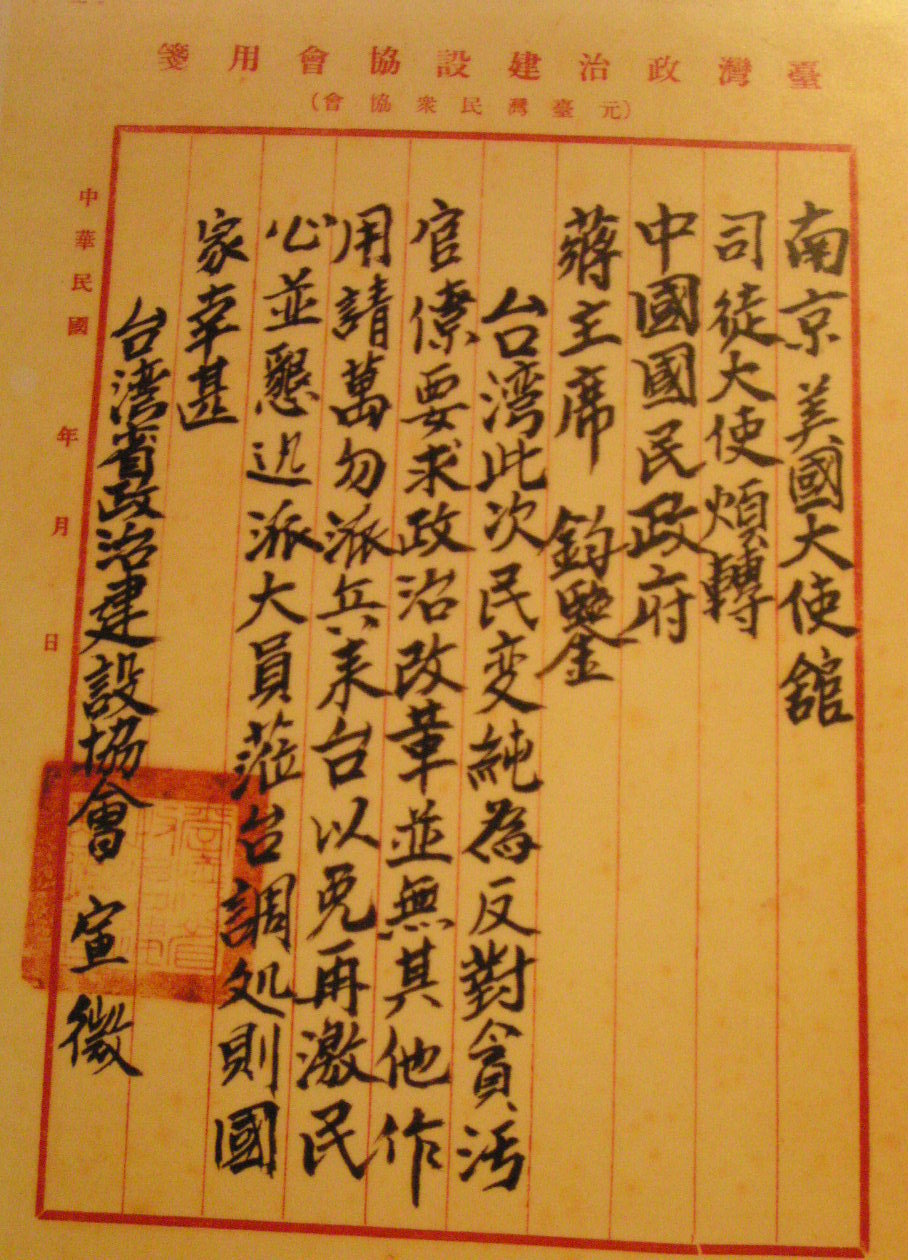 臺灣政治建設協會用箋
(元臺灣民衆協會)
南京美國大使舘
司徒大使煩轉
中國國民政府
蔣主席 鈞鑒
台湾此次民变純為反對貪污
官僚要求政治改革並無其他作
用請萬勿派兵来台以免再激民
心並懇迅派大員蒞台調処則國
家幸甚
台湾省政治建設協會 宣 微
中華民國 年 月 日